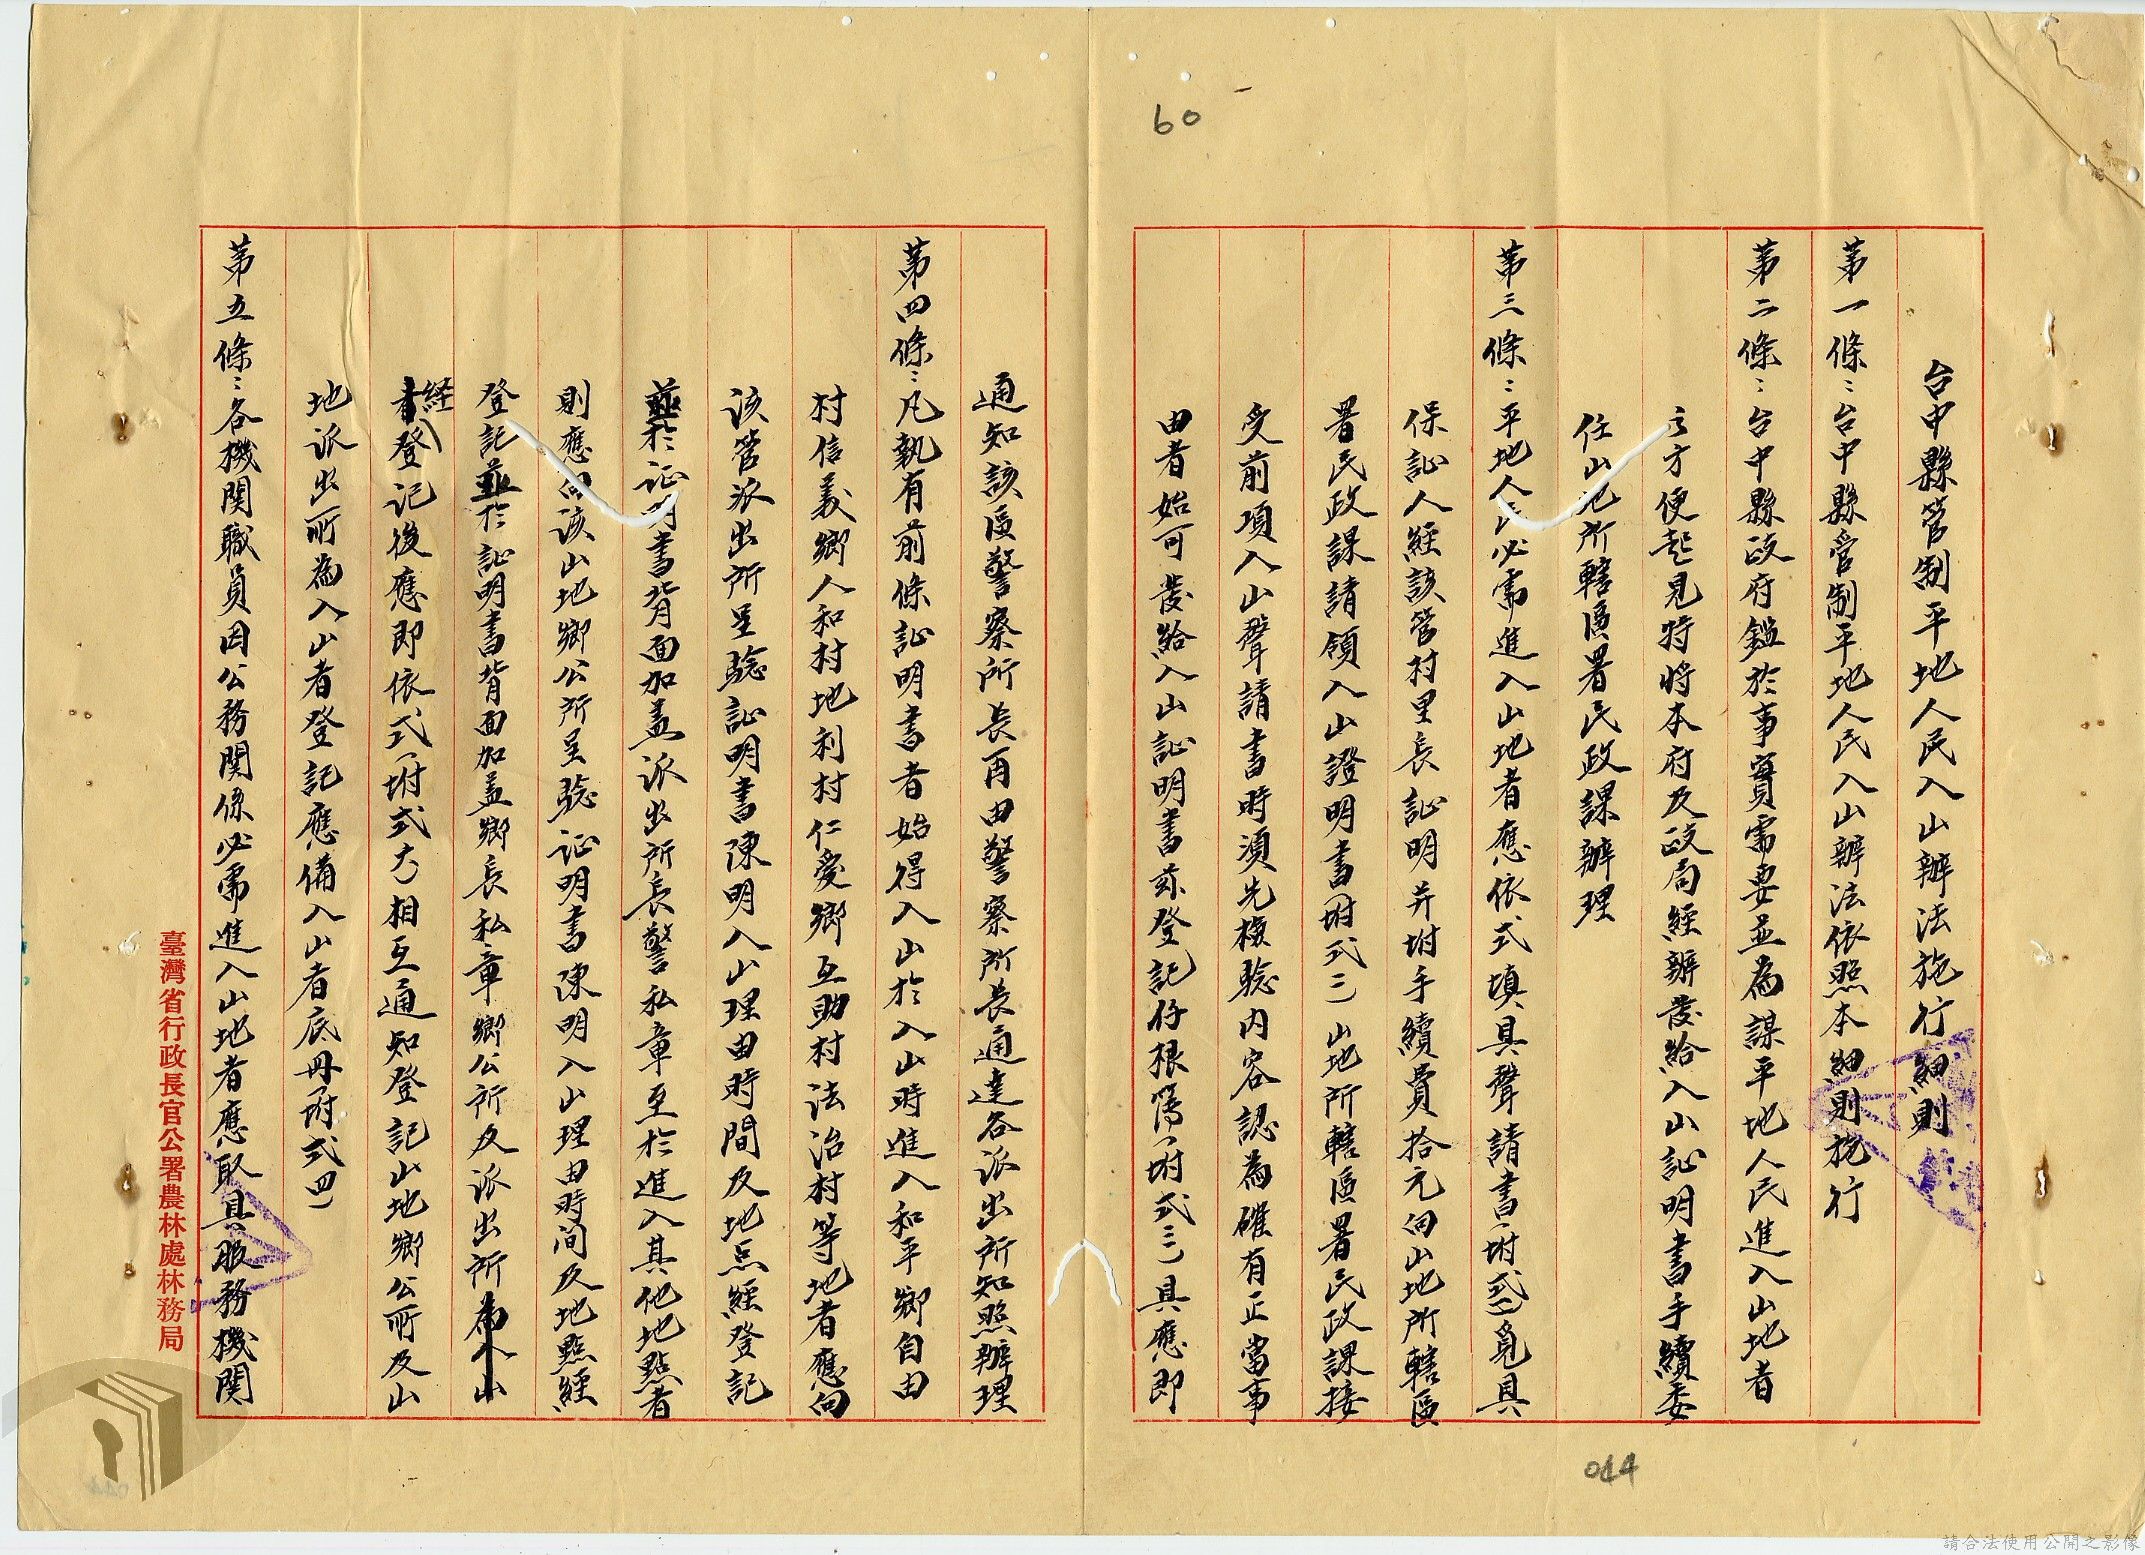 60
台中縣管制平地人民入山辦法施行細則
第一條：台中縣管制平地人民入山辦法依照本細則施行
第二條：台中縣政府鑑於事實需要並為謀平地人民進入山地者
方便起見特將本府及政局經辦發給入山証明書手續委
任山地所轄區署民政課辦理
第三條：平地人民必需進入山地者應依式填具聲請書(附式一)覓具
保証人經該管村里長証明并附手續費拾元向山地所轄區
署民政課請領入山證明書(附式二)山地所轄區署民政課接
受前項入山聲請書時須先核驗內容認為確有正當事
由者始可發給入山証明書並登記仔根簿(附式三)具應即
通知該區警察所長再由警察所長通達各派出所知照辦理
第四條：凡執有前條証明書者始得入山於入山時進入和平鄉自由
村信義鄉人和村地利村仁愛鄉互助村法治村等地者應向
該管派出所呈驗証明書陳明入山理由時間及地点經登記
並於証明書背面加盖派出所長警私章至於進入其他地點者
則應向該山地鄉公所呈驗証明書陳明入山理由時间及地點經
登記並於証明書背面加盖鄉長私章鄉公所及派出所為入山
者経登记後應即依式(附式六)相互通知登記山地鄉公所及山
地派出所為入山者登記應備入山者底冊(附式四)
第五條：各機関職員因公務関係必需進入山地者應取具服務機関
臺灣省行政長官公署農林處林務局
044
請合法使用公開之影像